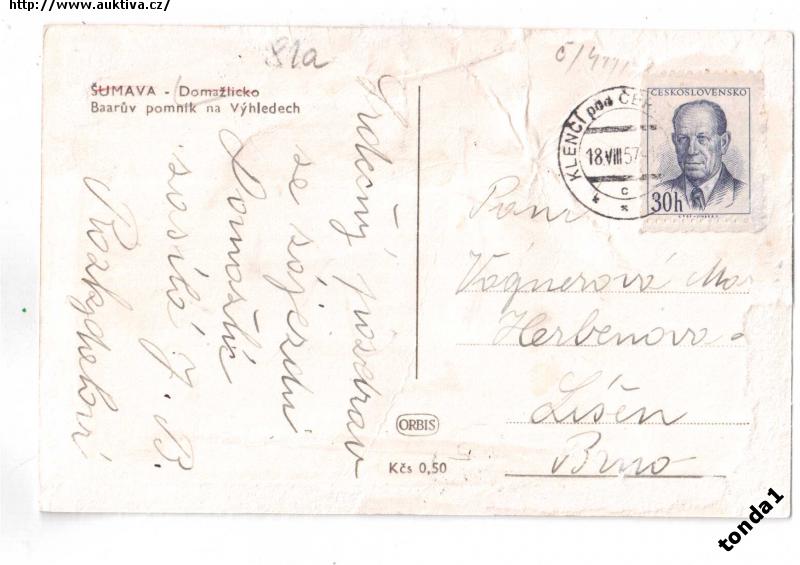 http://www.auktiva.cz/
81a
ŠUMAVA - Domažlicko
Baarův pomník na Výhledech
Srdečný pozdrav
ze zájezdu
Domažlic
zasílá J. B.
KLENČÍ pod ČER
18.VIII.57
c
ČESKOSLOVENSKO
30h
Paní
Vágnerová Mar
Herbenova
Líšeň
Brno
ORBIS
Kčs 0,50
tonda1